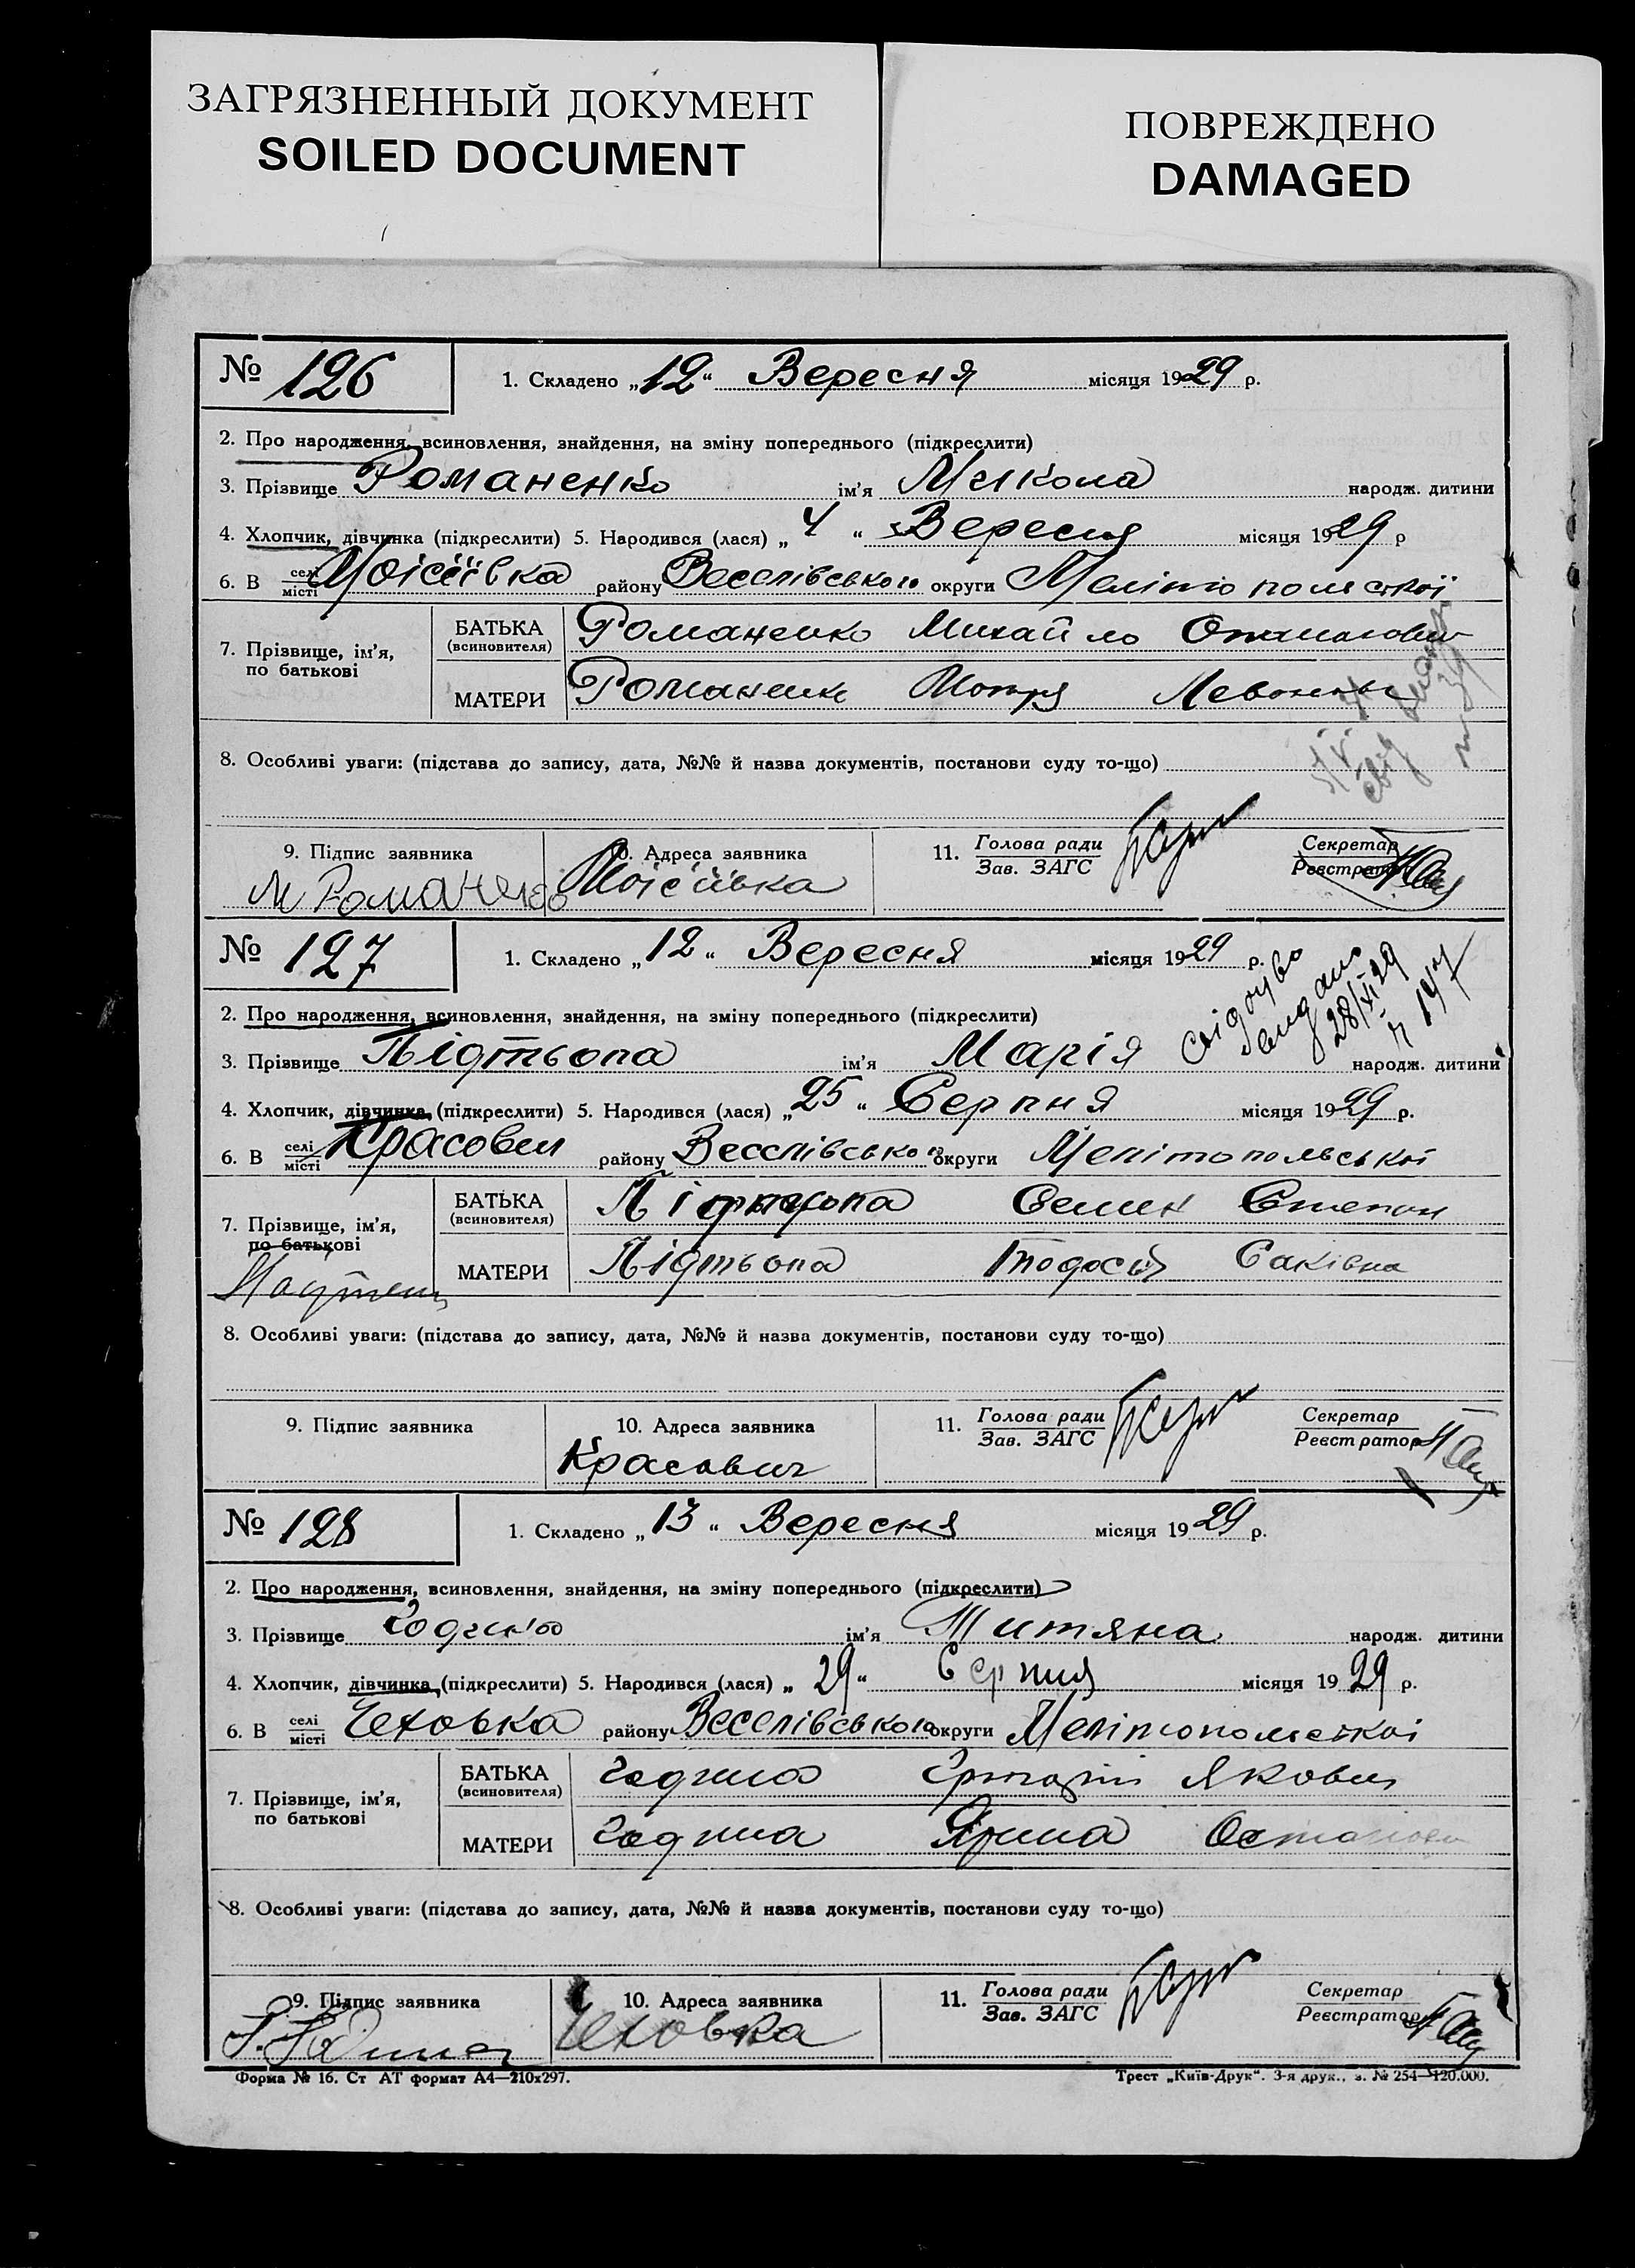 ЗАГРЯЗНЕННЫЙ ДОКУМЕНТ
SOILED DOCUMENT
ПОВРЕЖДЕНО
DAMAGED
№ 126
1. Складено „12“ Вересня місяця 1929 р.
2. Про народження, всиновлення, знайдення, на зміну попереднього (підкреслити)
3. Прізвище Романенко ім'я Микола народж. дитини
4. Хлопчик, дівчинка (підкреслити) 5. Народився (лася) „4“ Вересня місяця 1929 р
6. В селі місті Моісіївка району Веселівського округи Мелітопольської
7. Прізвище, ім'я, по батькові
БАТЬКА (всиновителя) Романенко Михайло
МАТЕРИ Романенко Мотря
8. Особливі уваги: (підстава до запису, дата, №№ й назва документів, постанови суду то-що)
9. Підпис заявника
М Романенко
10. Адреса заявника
Моісіївка
11. Голова ради
Зав. ЗАГС
Секретар
Реєстратор
№ 127
1. Складено „12“ Вересня місяця 1929 р.
28/XI 29
147
2. Про народження, всиновлення, знайдення, на зміну попереднього (підкреслити)
3. Прізвище Підтьопа ім'я Марія народж. дитини
4. Хлопчик, дівчинка (підкреслити) 5. Народився (лася) „25“ Серпня місяця 1929 р.
6. В селі місті району Веселівського округи Мелітопольської
7. Прізвище, ім'я, по батькові
БАТЬКА (всиновителя) Підтьопа Семен Степан
МАТЕРИ Підтьопа Тодосія Саківна
8. Особливі уваги: (підстава до запису, дата, №№ й назва документів, постанови суду то-що)
9. Підпис заявника
10. Адреса заявника
11. Голова ради
Зав. ЗАГС
Секретар
Реєстратор
№ 128
1. Складено „13“ Вересня місяця 1929 р.
2. Про народження, всиновлення, знайдення, на зміну попереднього (підкреслити)
3. Прізвище ім'я Титяна народж. дитини
4. Хлопчик, дівчинка, (підкреслити) 5. Народився (лася) „29“ Серпня місяця 1929 р.
6. В селі місті Чеховка району Веселівського округи Мелітопольської
7. Прізвище, ім'я, по батькові
БАТЬКА (всиновителя) Година Якович
МАТЕРИ Година Ярина
8. Особливі уваги: (підстава до запису, дата, №№ й назва документів, постанови суду то-що)
9. Підпис заявника
10. Адреса заявника
Чеховка
11. Голова ради
Зав. ЗАГС
Секретар
Реєстратор
Форма № 16. Ст АТ формат А4—210х297.
Трест „Київ-Друк“. 3-я друк., з. № 254—120.000.